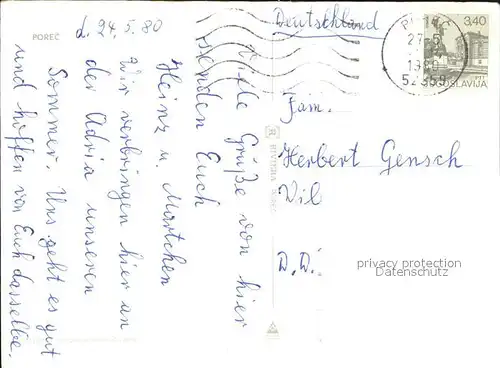 POREČ
d. 24.5.80
Viele Grüße von hier
senden Euch
Heinz u. Martchen
Wir verbringen hier an
der Adria unseren
Sommer. Uns geht es gut
und hoffen von Euch dasselbe.
Deutschland
3,40
27
1980
JUGOSLAVIJA
Fam.
Herbert Gensch
RIVIERA
privacy protection
Datenschutz